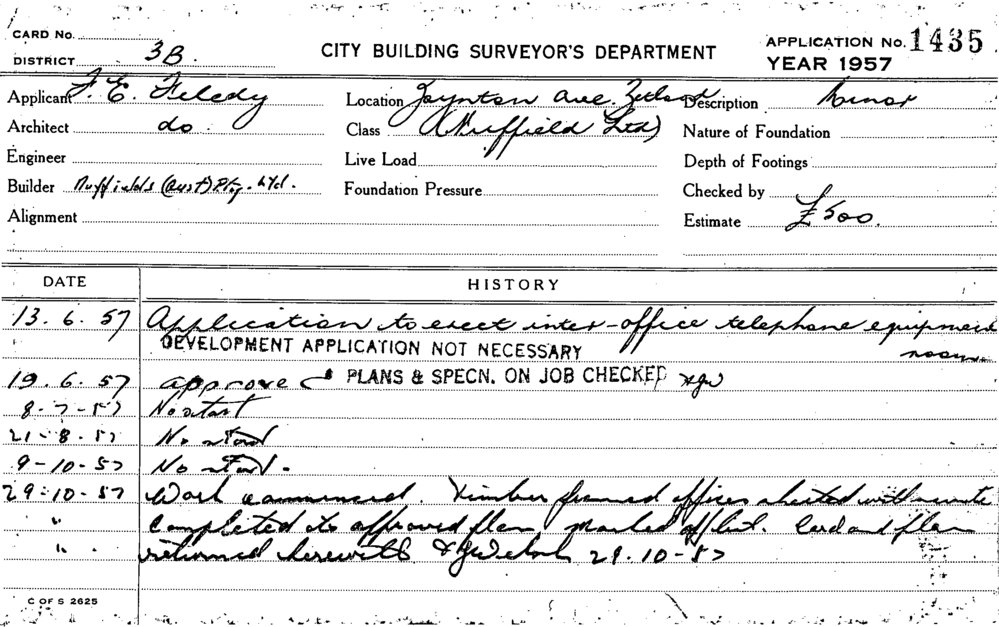 CARD No.
DISTRICT 3B.
CITY BUILDING SURVEYOR'S DEPARTMENT
APPLICATION No. 1435
YEAR 1957
Applicant F. E. Feledy Location Joynton Ave. Zetland Description Minor
Architect do. Class (Nuffield Ltd) Nature of Foundation
Engineer Live Load Depth of Footings
Builder Nuffields (Aust) Pty. Ltd. Foundation Pressure Checked by
Alignment Estimate £500.
DATE HISTORY
13. 6. 57 Application to erect inter-office telephone equipment
DEVELOPMENT APPLICATION NOT NECESSARY room.
19. 6. 57 approved PLANS & SPECN. ON JOB CHECKED
8-7-57 No start
21-8-57 No start
9-10-57 No start.
29-10-57 Work commenced. Timber framed offices sheeted with
" Completed to approved plan marked off list. Card and plan
" returned herewith 29.10-57
C OF S 2625